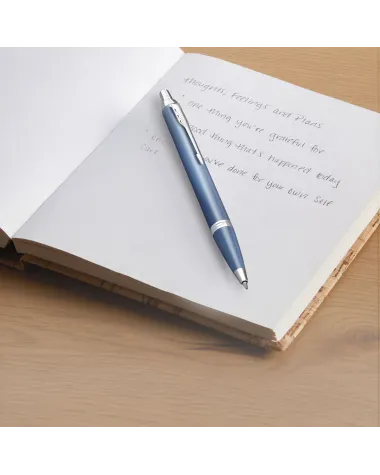 Thoughts, Feelings and Plans
• one thing you're grateful for
• good thing that's happened today
you've done for your own self
care